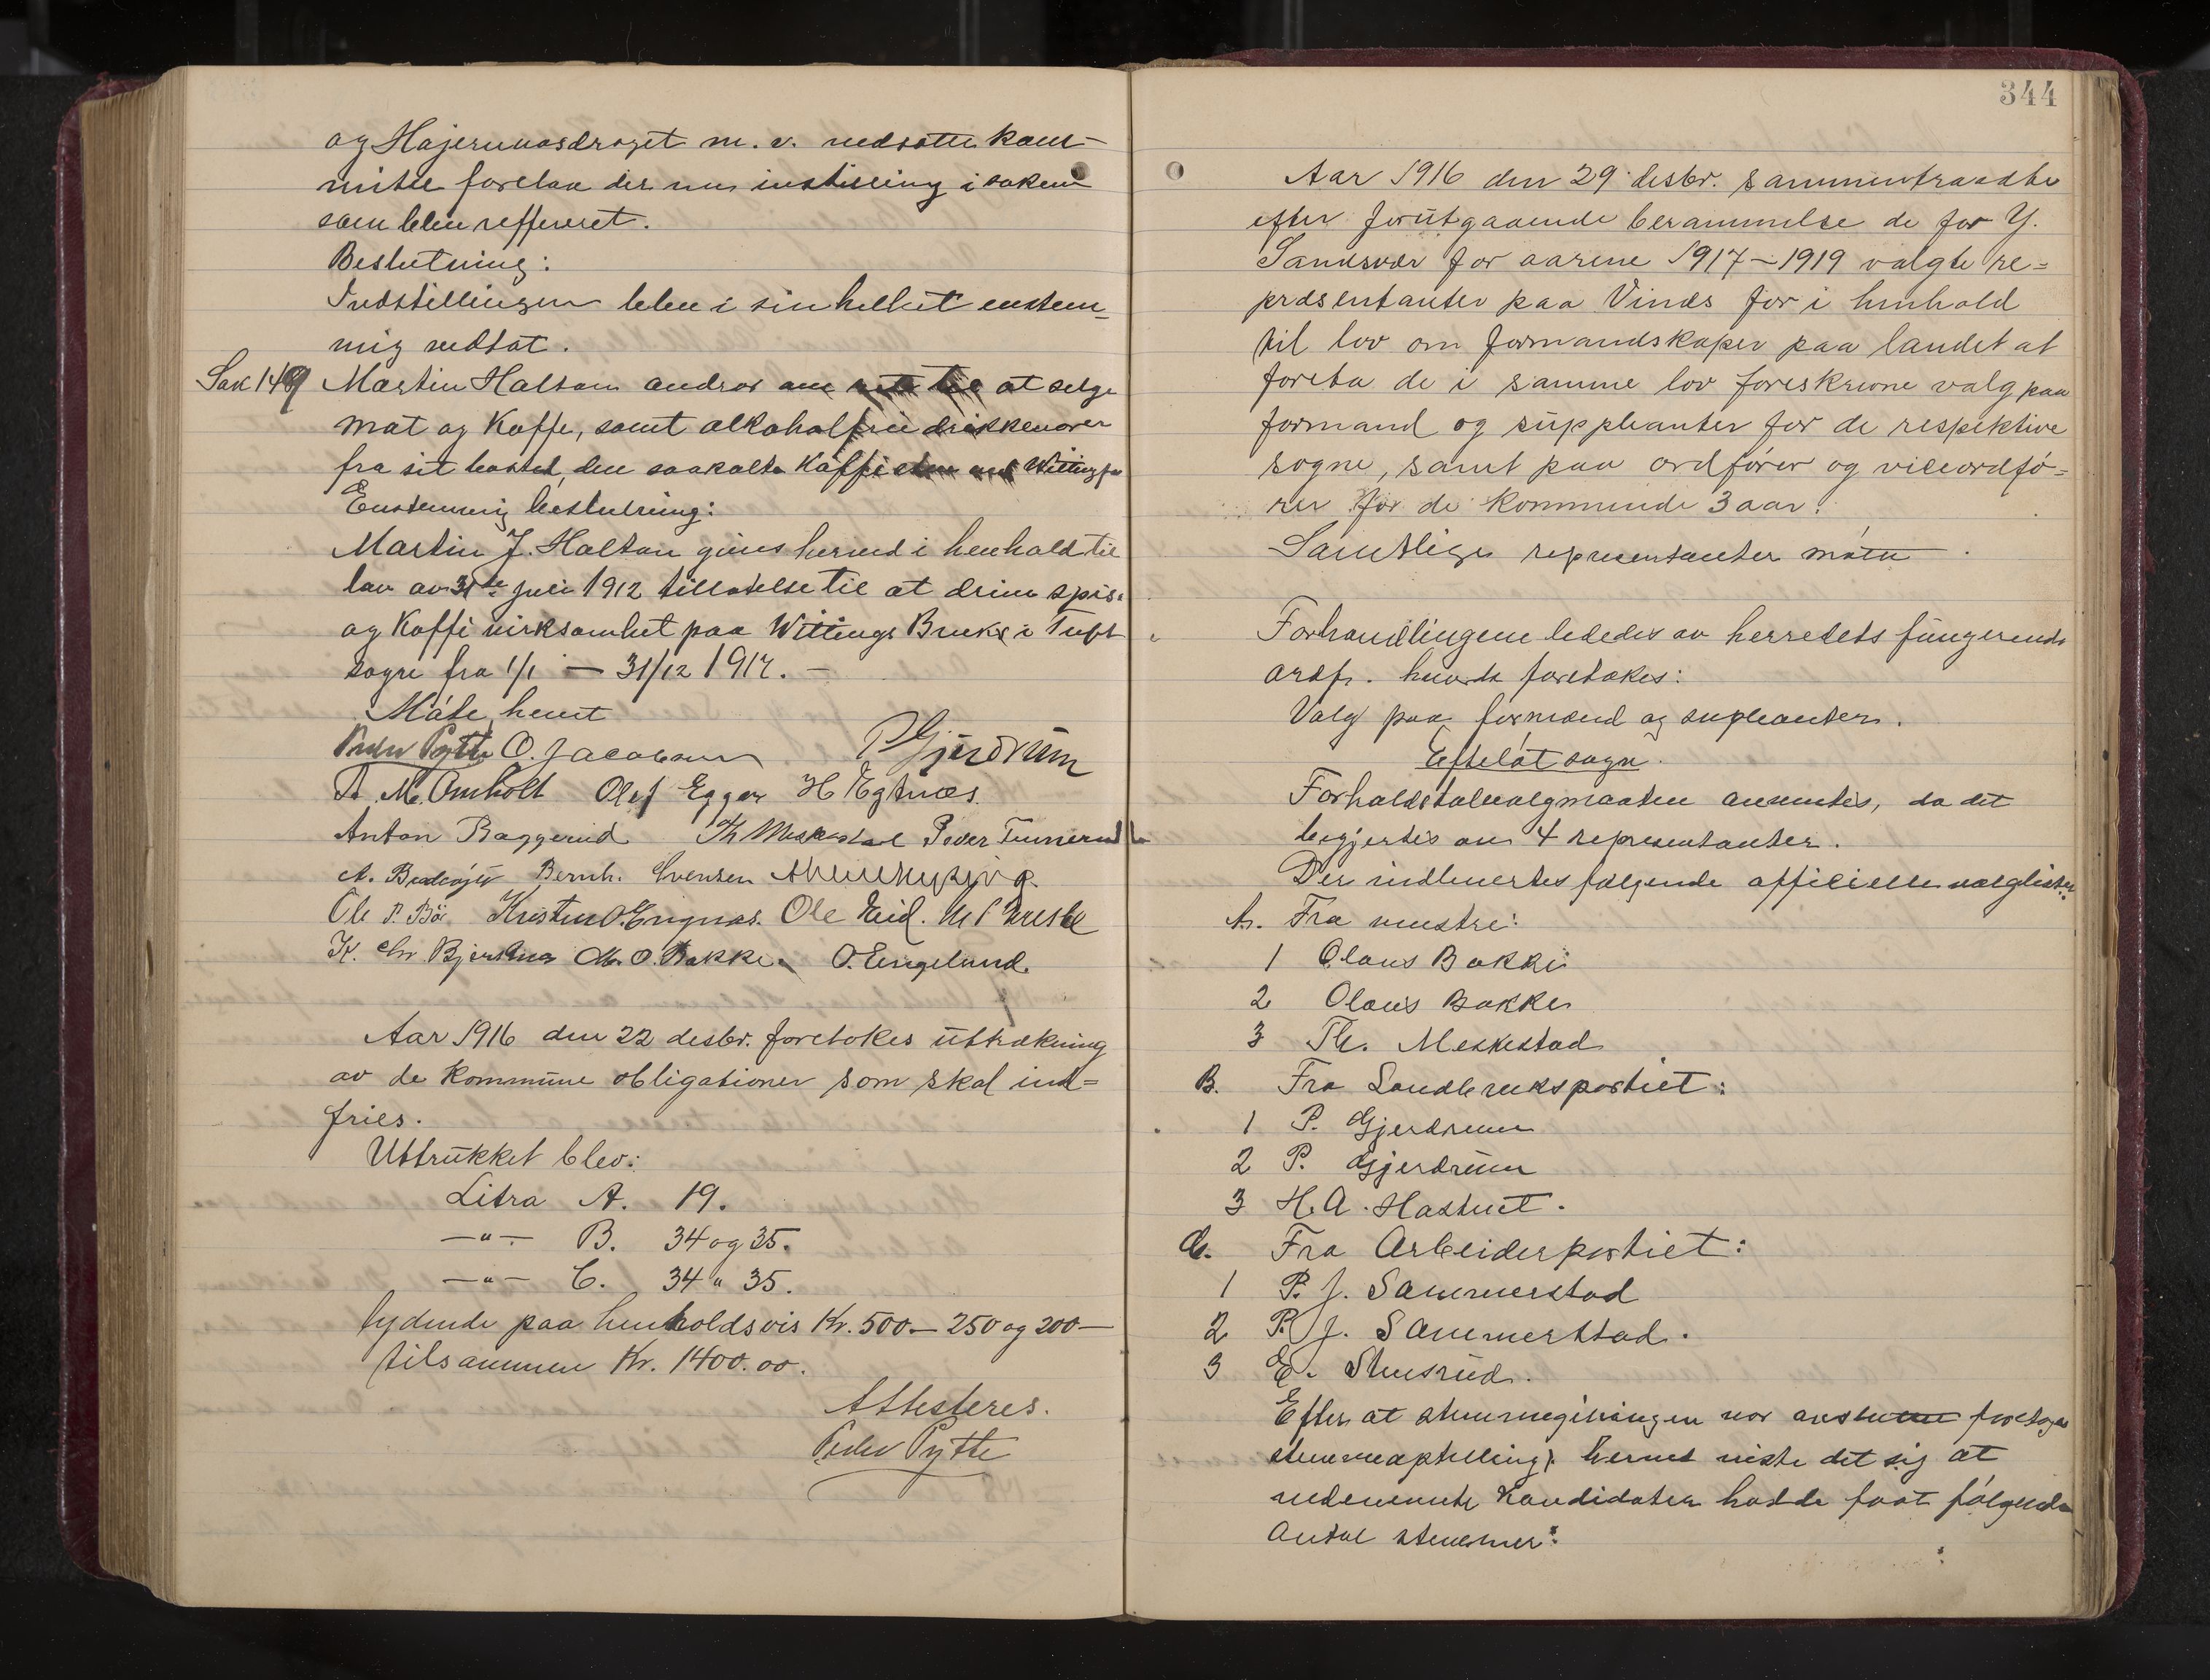 og Hajernvasdraget m. v. nedsatte kom-
mitte forelaa der nu instilling i saken
som blev reffereret.
Beslutning:
Indstillingen blev i sin helhet enstem-
mig vedtat.
Sak 149 Martin Halton andrar om at selge
mat og Kaffe, samt alkoholfrie drikkevarer
fra sit bosted, den saakalte Kaffi
Enstemmig beslutning:
Martin J. Halton gives herved i henhold til
lov av 31te juli 1912 tillatelse til at drive spise
og Kaffi virksomhet paa Wittings Bruk i Tuft
sogn fra 1/1 — 31/12 1917. —
Møte hevet
Peder Pytte O. Jacobsen P Gjerdrum
T. M. Omholt Olaf Eggar H Egtnæs
Anton Baggerud Th Meskestad Peder Tinnerud
A. Bernh. Evensen
Ole P. Bø. Kristen O. Engnæs. Ole Eid.
K. Chr Bjerknes M. O. Bakke. O. Engelund.
Aar 1916 den 22 desbr. foretokes uttrækning
av de kommune obligationer som skal ind=
fries.
Uttrukket blev:
Litra A. 19.
—"— B. 34 og 35.
—"— C. 34 " 35.
lydende paa henholdsvis Kr. 500.— 250 og 200—
tilsammen Kr. 1400.00.
Attesteres.
Peder Pytte
344
Aar 1916 den 29 desbr. sammentraadte
efter forutgaaende berammelse de for Y.
Sandsvær for aarene 1917—1919 valgte re=
præsentanter paa Vinds for i henhold
til lov om formandskaper paa landet at
foreta de i samme lov foreskrevne valg paa
formænd og suppleanter for de respektive
sogne, samt paa ordfører og viceordfø=
rer for de kommende 3 aar.
Samtlige representanter møtte.
Forhandlingene lededes av herredets fungerende
ordf. hvorda foretokes:
Valg paa formænd og supleanter.
Efteløt sogn.
Forholdstalvalgmaaten anvendtes, da det
begjertes av 4 representanter.
Der indlevertes følgende officielle valglister:
A. Fra venstre:
1 Olaus Bakke
2 Olaus Bakke
3 Th. Meskestad
B. Fra Landbrukspartiet:
1 P. Gjerdrum
2 P. Gjerdrum
3 H. A. Hastvet.
C. Fra Arbeiderpartiet:
1 P. J. Sammerstad
2 P. J. Sammerstad.
3 E. Stensrud.
Efter at stemmegivningen var avsluttet foretoges
stemmeoptelling. Herved viste det sig at
nedennevnte kandidater hadde faat følgende
antal stemmer: